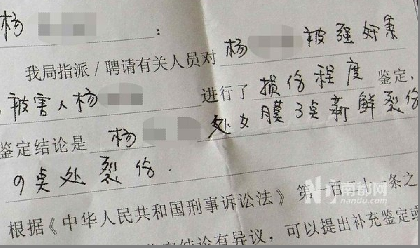 杨
:
我局指派/聘请有关人员对 杨 被强奸案
被害人杨 进行了 损伤程度 鉴定
鉴定结论是 杨 处女膜3点新鲜裂伤
9点处裂伤.
根据《中华人民共和国刑事诉讼法》第 十一条之
结论有异议,可以提出补充鉴定或